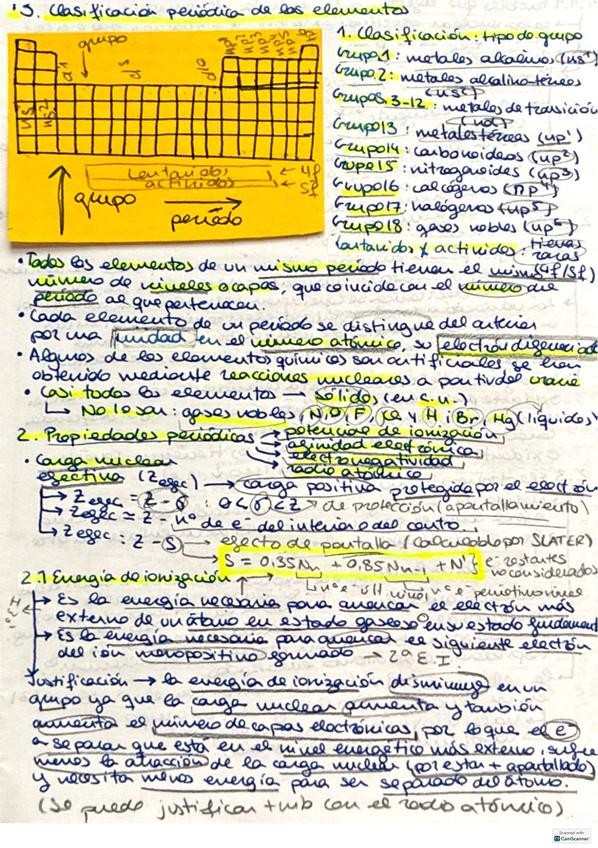 3. Clasificación periódica de los elementos
grupo
d1
d5
d10
ns1
ns2
Lantánidos ← 4f
actínidos ← 5f
↑ grupo
período →
1. Clasificación: tipo de grupo
Grupo 1: metales alcalinos (ns1)
Grupo 2: metales alcalino-térreos
(ns2)
Grupos 3-12: metales de transición
(nd)
Grupo 13: metales térreos (np1)
Grupo 14: carbonoideos (np2)
Grupo 15: nitrogenoides (np3)
Grupo 16: calcógenos (np4)
Grupo 17: halógenos (np5)
Grupo 18: gases nobles (np6)
Lantánidos y actínidos: tierras
raras
(4f/5f)
• Todos los elementos de un mismo período tienen el mismo
número de niveles o capas, que coincide con el número de
período al que pertenecen.
• Cada elemento de un período se distingue del anterior
por una unidad en el número atómico, su electrón diferenciador
• Algunos de los elementos químicos son artificiales, se han
obtenido mediante reacciones nucleares a partir del uranio
• Casi todos los elementos → sólidos (en c.n.)
↳ No lo son: gases nobles, N, O, F, Cl y H, Br, Hg (líquidos)
2. Propiedades periódicas → potencial de ionización
→ afinidad electrónica
→ electronegatividad
→ radio atómico
• Carga nuclear
efectiva (Zefec) → carga positiva protegida por el electrón
→ Zefec = Z - σ : 0 < σ < Z → de protección (apantallamiento)
→ Zefec ≃ Z - nº de e- del interior del
→ Zefec : Z - S → efecto de pantalla (calculable por SLATER)
→ S = 0,35Nn + 0,85Nn-1 + N' } e- restantes
no considerados
2.1 Energía de ionización
1ª E.I
→ Es la energía necesaria para arrancar el electrón más
externo de un átomo en estado gaseoso en su estado fundamental
→ Es la energía necesaria para arrancar el siguiente electrón
del ión monopositivo formado → 2ª E.I.
Justificación → la energía de ionización disminuye en un
grupo ya que la carga nuclear aumenta y también
aumenta el número de capas electrónicas, por lo que el e-
a separar que está en el nivel energético más externo, sufre
menos la atracción de la carga nuclear (por estar + apantallado)
y necesita menos energía para ser separado del átomo.
(Se puede justificar tmb con el radio atómico)
Scanned with
CamScanner